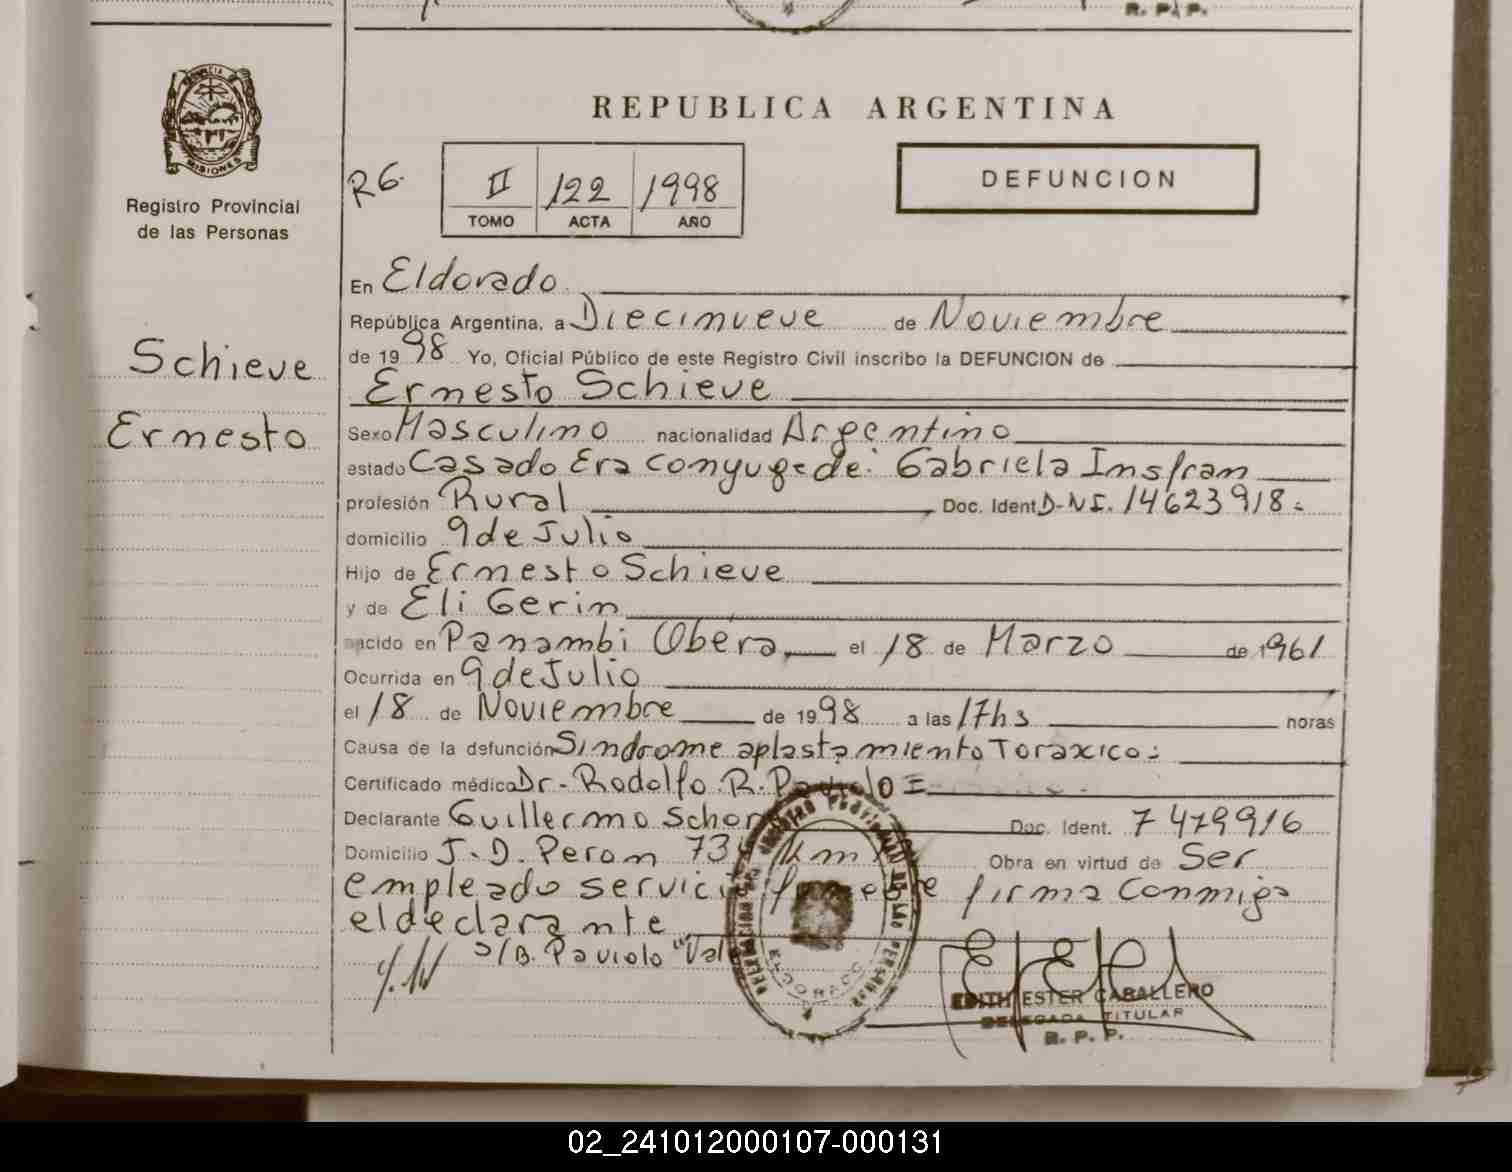 R. P. P.
PROVINCIA DE
MISIONES
Registro Provincial
de las Personas
Schieve
Ernesto
REPUBLICA ARGENTINA
R6.
II 122 1998
TOMO ACTA AÑO
DEFUNCION
En Eldorado
República Argentina, a Diecinueve de Noviembre
de 1998 Yo, Oficial Público de este Registro Civil inscribo la DEFUNCION de
Ernesto Schieve
Sexo Masculino nacionalidad Argentino
estado Casado Era conyuge de: Gabriela Insfran
profesión Rural Doc. Ident D-NI. 14623918=
domicilio 9 de Julio
Hijo de Ernesto Schieve
y de Eli Gerin
nacido en Panambi Obera, el 18 de Marzo de 1961
Ocurrida en 9 de Julio
el 18 de Noviembre de 1998 a las 17hs horas
Causa de la defunción Sindrome aplastamiento Toraxico=
Certificado médico Dr- Rodolfo R. Paviolo =
Declarante Guillermo Doc. Ident. 7479916
Domicilio J-D. Peron 73 km Obra en virtud de Ser
empleado servicio funebre firma Conmigo
el declarante
S/B. Paviolo "Val
ELDORADO
EDITH ESTER CABALLERO
DELEGADA TITULAR
R. P. P.
02_241012000107-000131